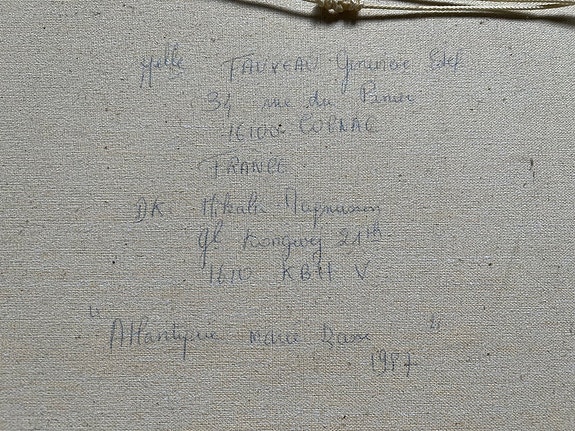 Melle FAUVEAU Geneviève
34 rue du Panier
16100 COGNAC
FRANCE
DK. Magnusson
gl Kongevej 21 th
1610 KBH V
"Atlantique marée basse"
1987